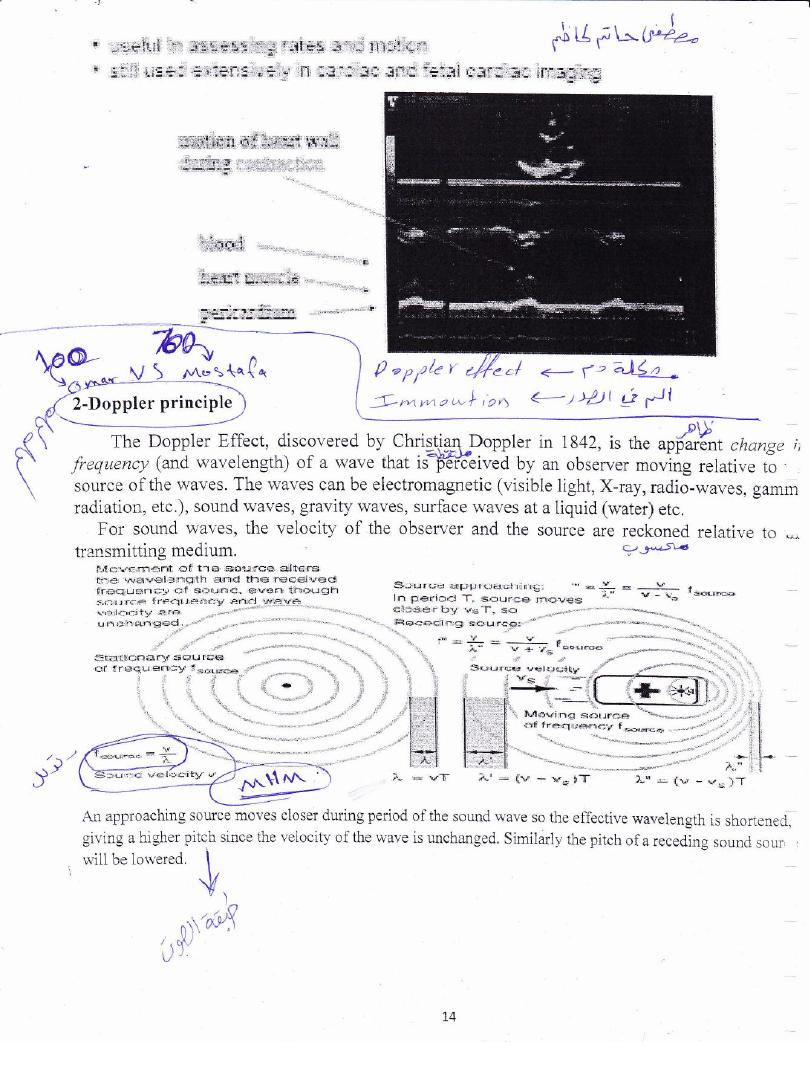 مصطفى حاتم كاظم
• useful in assessing rates and motion
• still used extensively in cardiac and fetal cardiac imaging
motion of heart wall
during contraction
blood
heart muscle
pericardium
100 700
Omar VS Mostafa
Doppler effect ←
Immoution ←
2-Doppler principle
ظاهر
The Doppler Effect, discovered by Christian Doppler in 1842, is the apparent change
frequency (and wavelength) of a wave that is perceived by an observer moving relative to
source of the waves. The waves can be electromagnetic (visible light, X-ray, radio-waves, gamm
radiation, etc.), sound waves, gravity waves, surface waves at a liquid (water) etc.
For sound waves, the velocity of the observer and the source are reckoned relative to
transmitting medium.
محسوب
Movement of the source alters
the wavelength and the received
frequency of sound, even though
source frequency and wave
velocity are
unchanged.
Stationary source
of frequency f source
f source = v/λ
Sound velocity v
MHM
Source approaching: f" = v/λ" = v/(v - vs) f source
In period T, source moves
closer by vsT, so
Receding source:
f' = v/λ' = v/(v + vs) f source
Source velocity
vs
Moving source
of frequency f source
λ λ' λ"
λ = vT λ' = (v - vs)T λ" = (v - vs)T
An approaching source moves closer during period of the sound wave so the effective wavelength is shortened,
giving a higher pitch since the velocity of the wave is unchanged. Similarly the pitch of a receding sound sour
will be lowered.
14